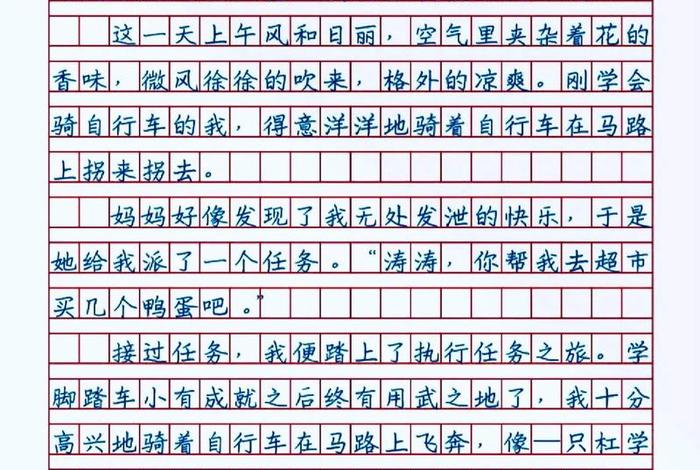 这一天上午风和日丽，空气里夹杂着花的
香味，微风徐徐的吹来，格外的凉爽。刚学会
骑自行车的我，得意洋洋地骑着自行车在马路
上拐来拐去。
妈妈好像发现了我无处发泄的快乐，于是
她给我派了一个任务。“涛涛，你帮我去超市
买几个鸭蛋吧。”
接过任务，我便踏上了执行任务之旅。学
脚踏车小有成就之后终有用武之地了，我十分
高兴地骑着自行车在马路上飞奔，像一只杠学